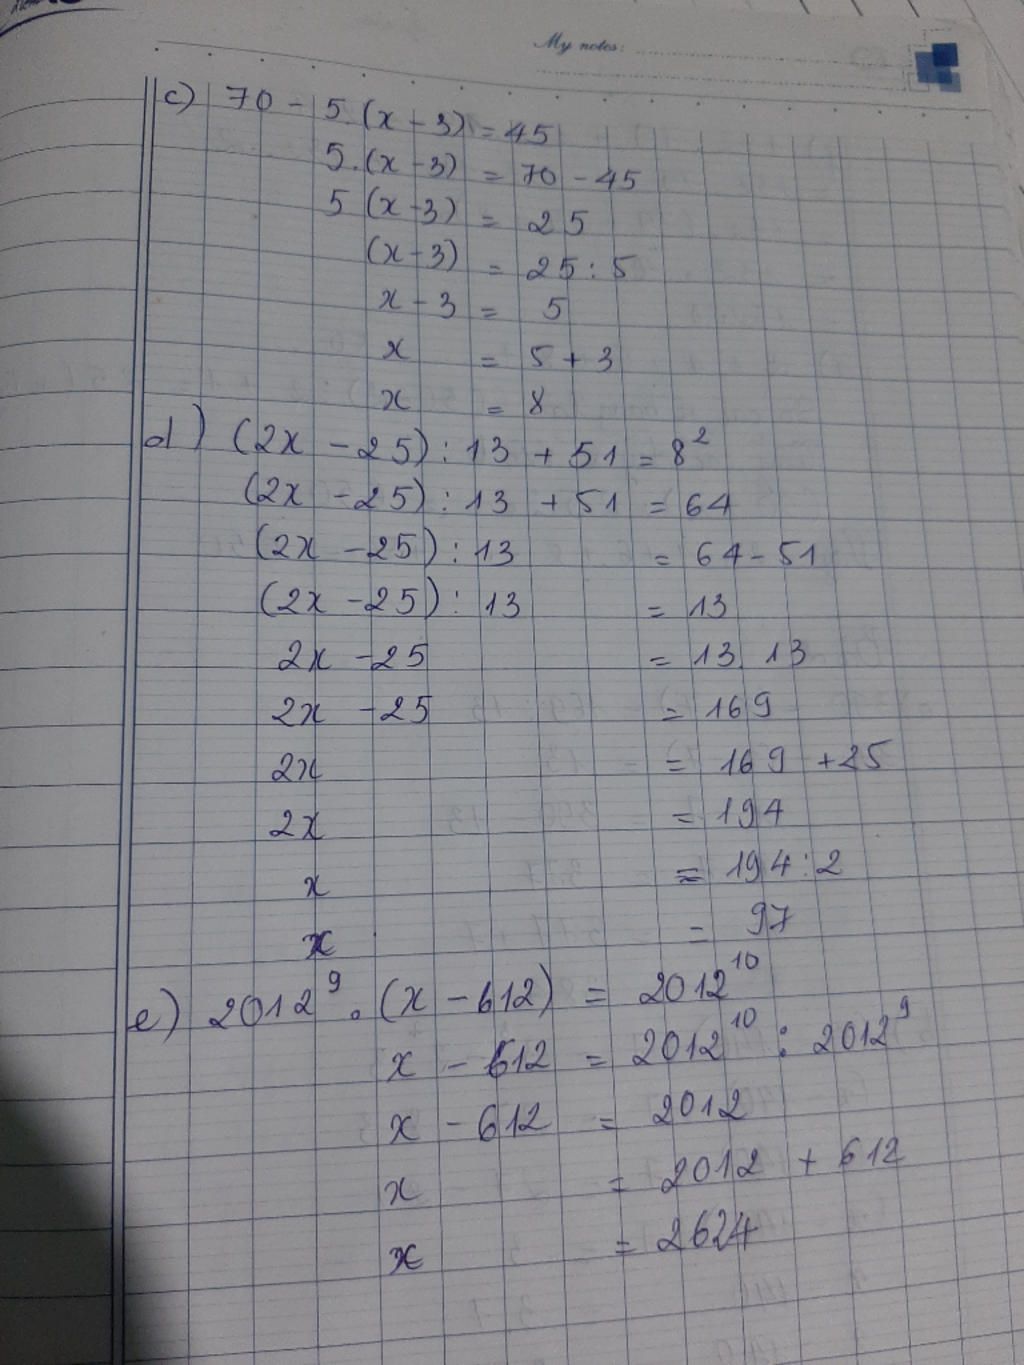 My notes:
c) 70 - 5.(x - 3) = 45
5.(x - 3) = 70 - 45
5 (x - 3) = 25
(x - 3) = 25 : 5
x - 3 = 5
x = 5 + 3
x = 8
d) (2x - 25) : 13 + 51 = 8²
(2x - 25) : 13 + 51 = 64
(2x - 25) : 13 = 64 - 51
(2x - 25) : 13 = 13
2x - 25 = 13 13
2x - 25 = 169
2x = 169 + 25
2x = 194
x = 194 : 2
x = 97
e) 2012⁹ . (x - 612) = 2012¹⁰
x - 612 = 2012¹⁰ : 2012⁹
x - 612 = 2012
x = 2012 + 612
x = 2624